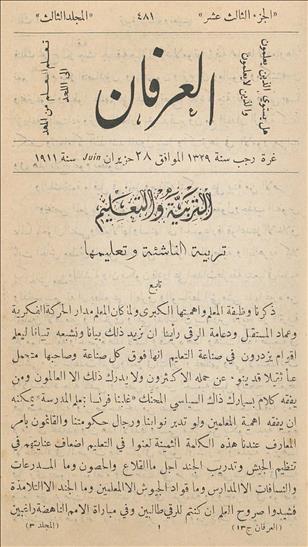 «الجزء الثالث عشر»
٤٨١
«المجلد الثالث»
هل يستوي الذين يعلمون
والذين لايعلمون
العرفان
تعلم العلم من المهد
الى اللحد
غرة رجب سنة ١٣٢٩ الموافق ٢٨ حزيران Juin سنة ١٩١١
التربية والتعليم
تربية الناشئة وتعليمها
تابع
ذكرنا وظيفة المعلم واهميتها الكبرى ولما كان المعلم مدار الحركة الفكرية
وعماد المستقبل ودعامة الرقي رأينا ان نزيد ذلك بياناً ونشبعه تبياناً ليعلم
اقوام يزدرون في صناعة التعليم انها فوق كل صناعة وصاحبها متحمل
عبأ ثقيلا قد ينوء عن حمله الاكثرون ولا يدرك ذلك الا العالمون ومن
يفقه كلام بسمارك ذاك السياسي المحنك «غلبنا فرنسا بمعلم المدرسة» يمكنه
ان يفقه اهمية المعلمين ولو تدبر نوابنا ورجال حكومتنا والقائمون بأمر
المعارف عندنا هذه الكلمة الثمينة لعنوا في التعليم اضعاف عنايتهم في
تنظيم الجيش وتدريب الجند اجل ما القلاع والحصون وما المدرعات
والنسافات الا المدارس وما قواد الجيوش الا المعلمين وما الجند الا التلامذة
فشيدوا صروح العلم ان كنتم للرقي طالبين وفي مباراة الامم الناهضة راغبين
(العرفان ج١٣)
١
(المجلد ٣)